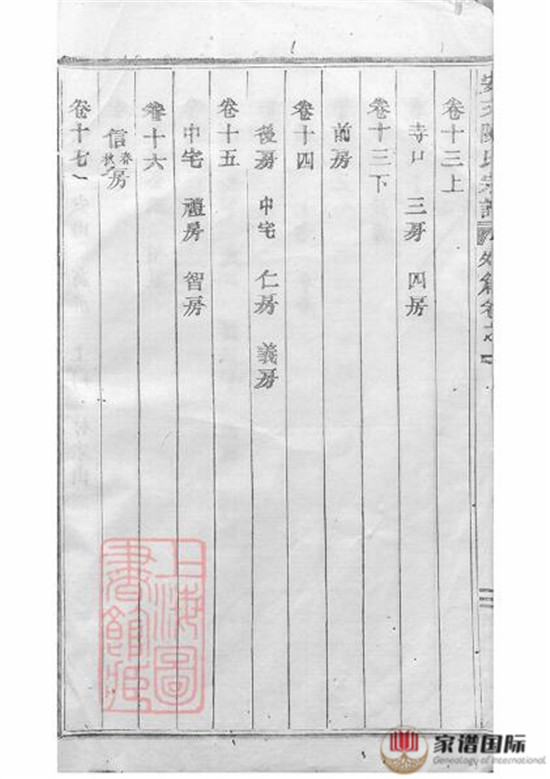 陳氏宗譜
卷十三上
寺口 三房 四房
卷十三下
前房
卷十四
後房 中宅 仁房 義房
卷十五
中宅 禮房 智房
卷十六
信春秋房
卷十七
上海圖書館藏
家谱国际
Genealogy of International